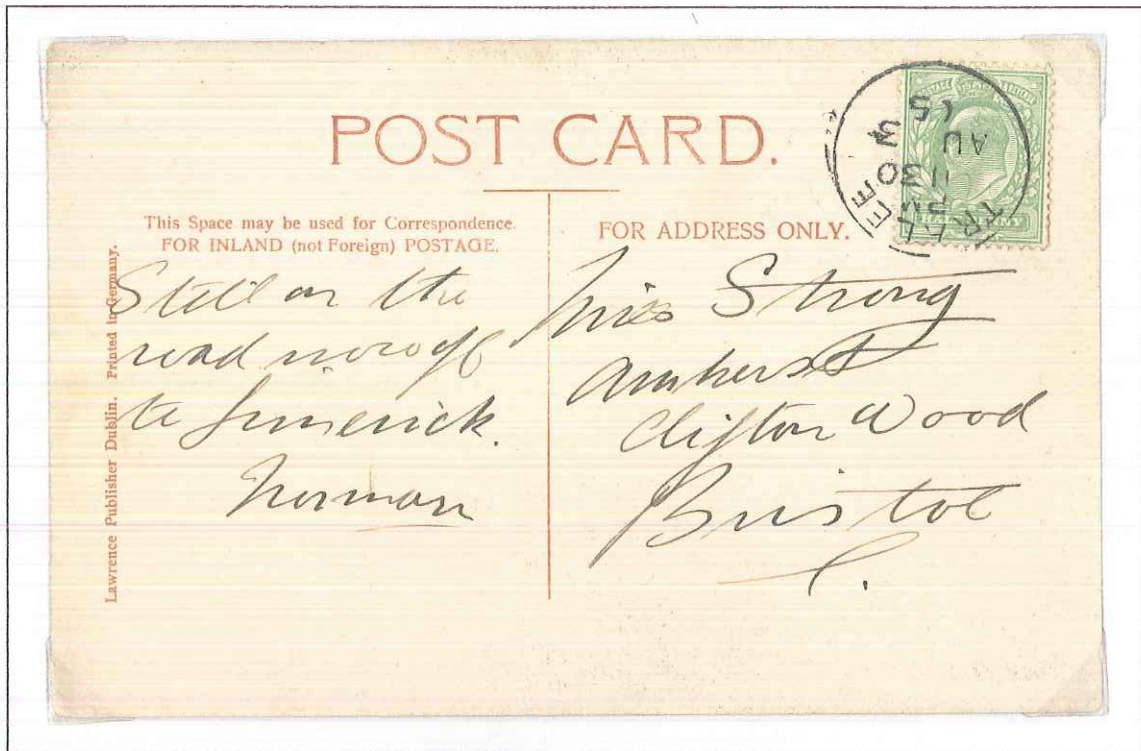 POST CARD.
This Space may be used for Correspondence.
FOR INLAND (not Foreign) POSTAGE.
FOR ADDRESS ONLY.
Lawrence Publisher Dublin. Printed in Germany.
Still on the
road now off
to Limerick.
Norman
Miss Strong
Amherst
Clifton Wood
Bristol
TRALEE
11 30
AU
5
POSTAGE
HALFPENNY